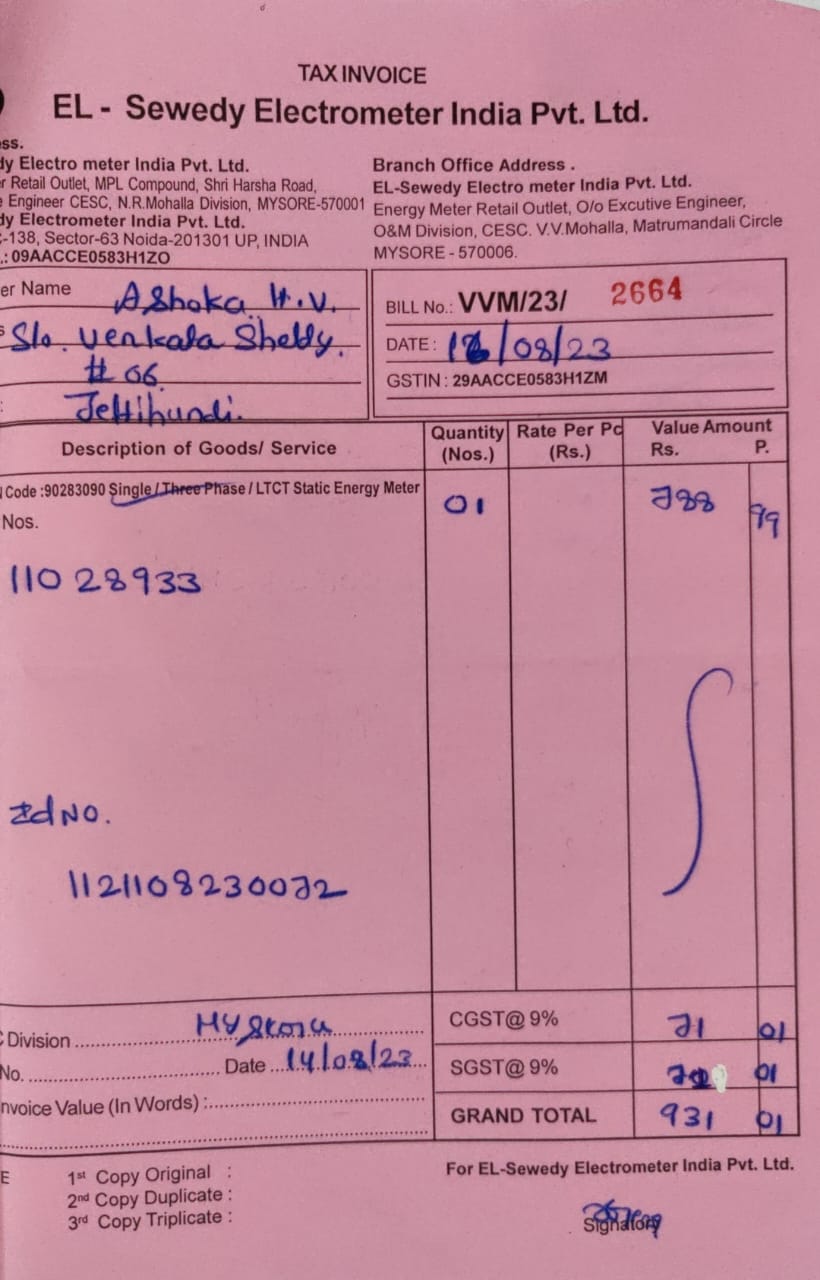 TAX INVOICE
EL - Sewedy Electrometer India Pvt. Ltd.
ss.
dy Electro meter India Pvt. Ltd.
r Retail Outlet, MPL Compound, Shri Harsha Road,
e Engineer CESC, N.R.Mohalla Division, MYSORE-570001
dy Electrometer India Pvt. Ltd.
-138, Sector-63 Noida-201301 UP, INDIA
.: 09AACCE0583H1ZO
Branch Office Address .
EL-Sewedy Electro meter India Pvt. Ltd.
Energy Meter Retail Outlet, O/o Excutive Engineer,
O&M Division, CESC. V.V.Mohalla, Matrumandali Circle
MYSORE - 570006.
er Name Ashoka H.V.
S/o. Venkata Shetty.
# 06
Jettihundi.
BILL No.: VVM/23/ 2664
DATE : /08/23
GSTIN : 29AACCE0583H1ZM
Description of Goods/ Service
Quantity (Nos.)
Rate Per Pc (Rs.)
Value Amount
Rs. P.
Code :90283090 Single / Three Phase / LTCT Static Energy Meter 01 788 99
Nos.
11028933
Id NO.
1121108230072
Division Mysuru
No. Date 14/08/23
nvoice Value (In Words) :
CGST@ 9% 71 01
SGST@ 9% 01
GRAND TOTAL 931 01
E
1st Copy Original :
2nd Copy Duplicate :
3rd Copy Triplicate :
For EL-Sewedy Electrometer India Pvt. Ltd.
Signatory